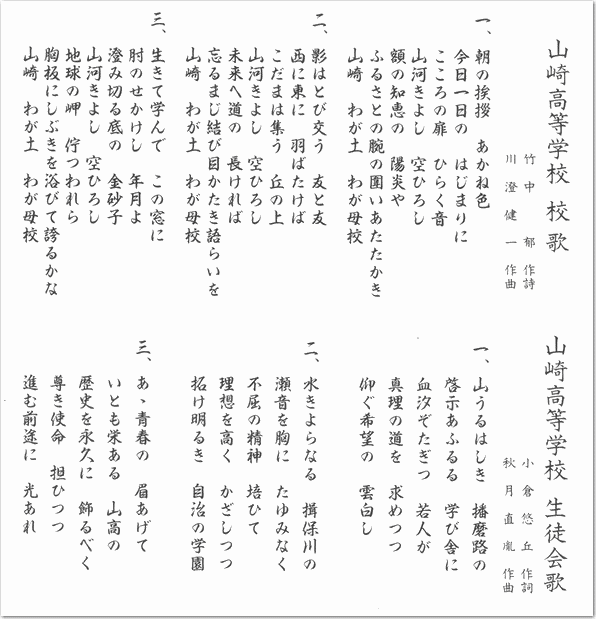 山崎高等学校 校歌
竹中 郁 作詩
川澄健一 作曲
一、朝の挨拶 あかね色
今日一日の はじまりに
こころの扉 ひらく音
山河きよし 空ひろし
額の知恵の 陽炎や
ふるさとの腕の囲いあたたかき
山崎 わが土 わが母校
二、影はとび交う 友と友
西に東に 羽ばたけば
こだまは集う 丘の上
山河きよし 空ひろし
未来へ道の 長ければ
忘るまじ結び目かたき語らいを
山崎 わが土 わが母校
三、生きて学んで この窓に
肘のせかけし 年月よ
澄み切る底の 金砂子
山河きよし 空ひろし
地球の岬 佇つわれら
胸板にしぶきを浴びて誇るかな
山崎 わが土 わが母校
山崎高等学校 生徒会歌
小倉悠丘 作詞
秋月直胤 作曲
一、山うるはしき 播磨路の
啓示あふるる 学び舎に
血汐ぞたぎつ 若人が
真理の道を 求めつつ
仰ぐ希望の 雲白し
二、水きよらなる 揖保川の
瀬音を胸に たゆみなく
不屈の精神 培ひて
理想を高く かざしつつ
拓け明るき 自治の学園
三、あゝ青春の 眉あげて
いとも栄ある 山高の
歴史を永久に 飾るべく
尊き使命 担ひつつ
進む前途に 光あれ